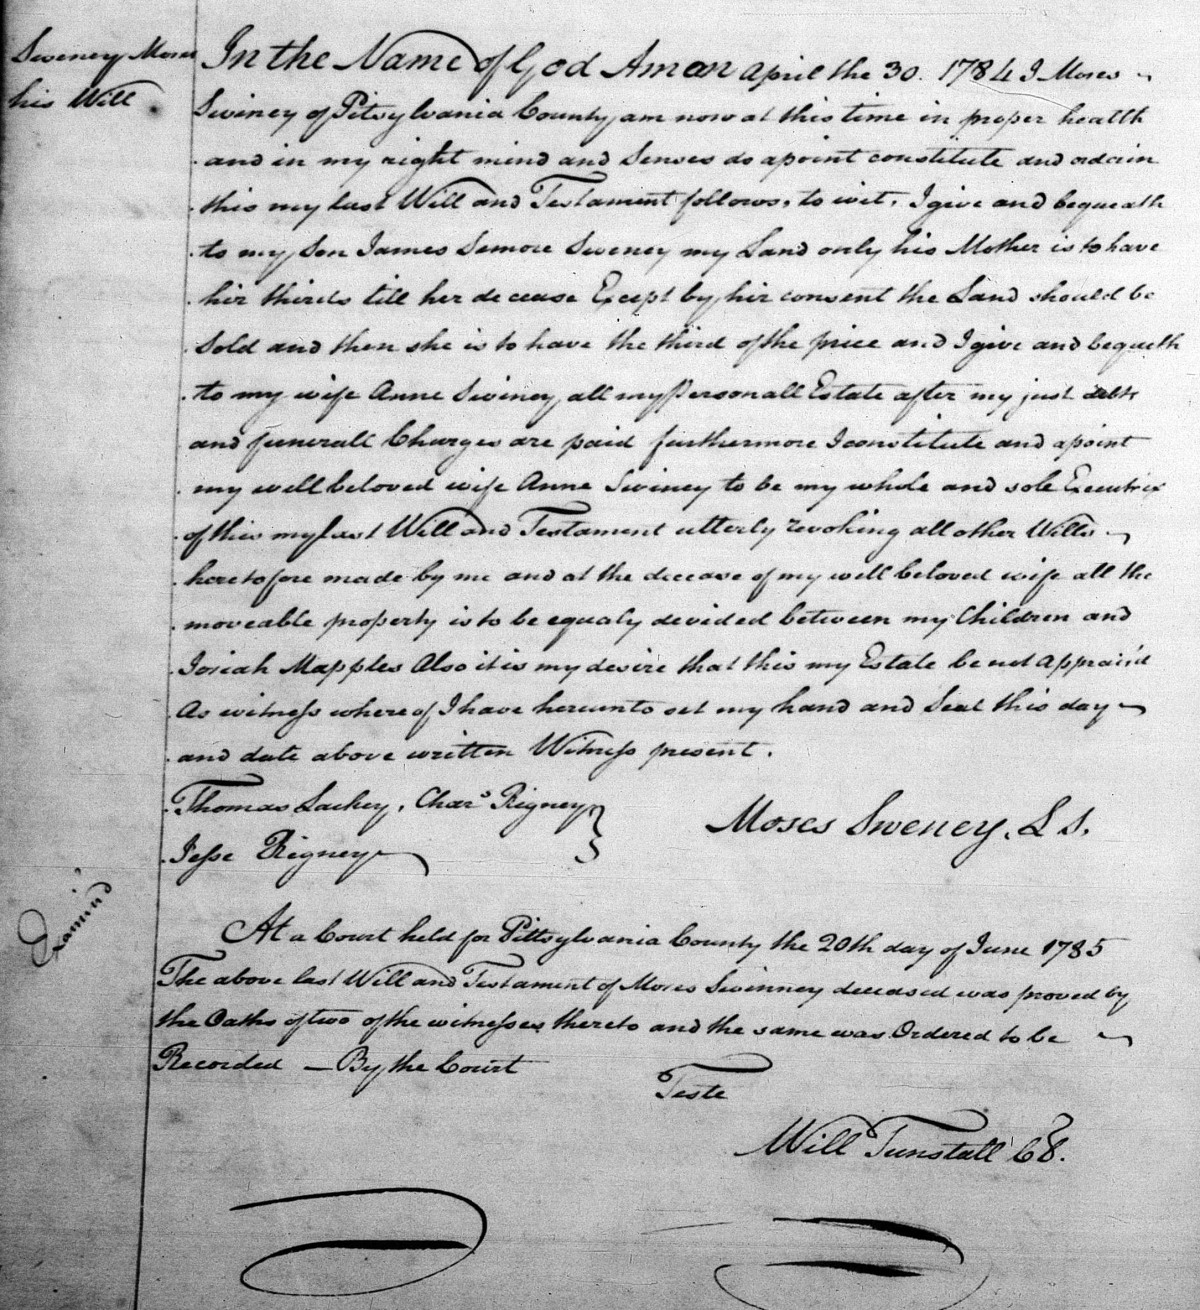 Sweney Moses
his Will
In the Name of God Aman april the 30. 1784 I Moses
Swiney of Pitsylvania County am now at this time in proper health
and in my right mind and Senses do apoint constitute and ordain
this my last Will and Testament follows, to wit, I give and bequeath
to my Son James Semore Sweney my Land only his Mother is to have
hir thirds till her decease Except by hir consent the Land should be
Sold and then she is to have the third of the price and I give and bequeth
to my wife Anne Swiney all my Personall Estate after my just debts
and funerall Charges are paid furthermore I constitute and apoint
my well beloved wife Anne Swiney to be my whole and sole Executrix
of this my last Will and Testament utterly revoking all other Wills
heretofore made by me and at the decease of my well beloved wife all the
moveable property is to be equaly devided between my Children and
Josiah Mapples Also it is my desire that this my Estate be not Appraisd
As witness where of I have hereunto set my hand and Seal this day
and date above written Witness present.
Thomas Lackey, Chars Rigney
Jesse Rigney
Moses Sweney, L S.
Examin'd
At a Court held for Pittsylvania County the 20th day of June 1785
The above last Will and Testament of Moses Swinney deceased was proved by
the Oaths of two of the witnesses thereto and the same was Ordered to be
Recorded — By the Court
Teste
Will Tunstall